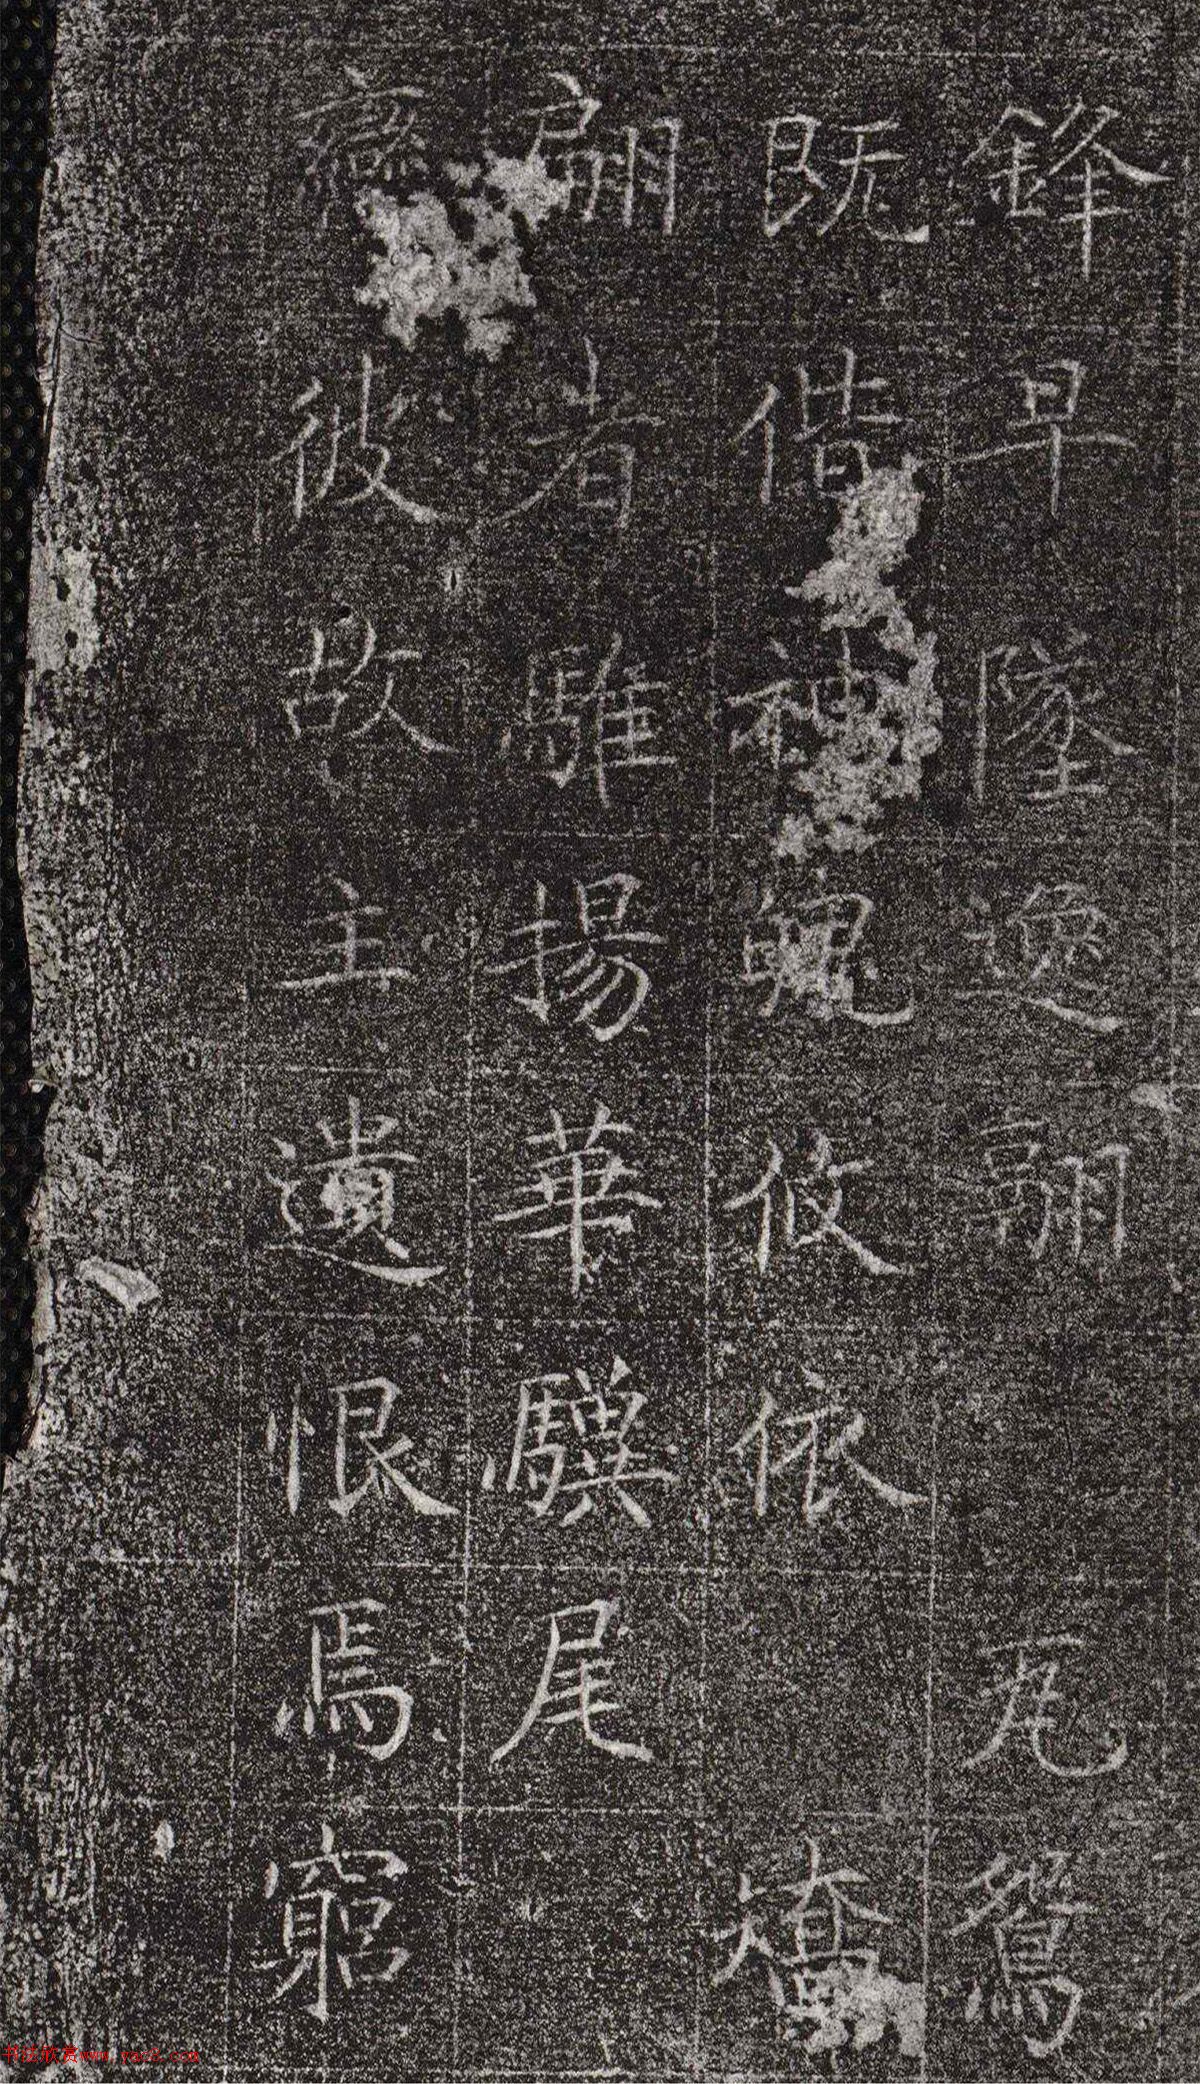 鋒早墜逸翮 瓦鴛
既偕神魄攸依 矯
翩者騅揚華驥尾
孌彼故主遺恨焉窮
书法欣赏www.yac8.com